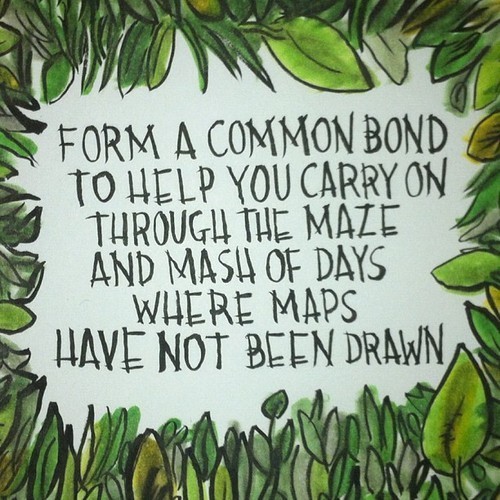 FORM A COMMON BOND
TO HELP YOU CARRY ON
THROUGH THE MAZE
AND MASH OF DAYS
WHERE MAPS
HAVE NOT BEEN DRAWN